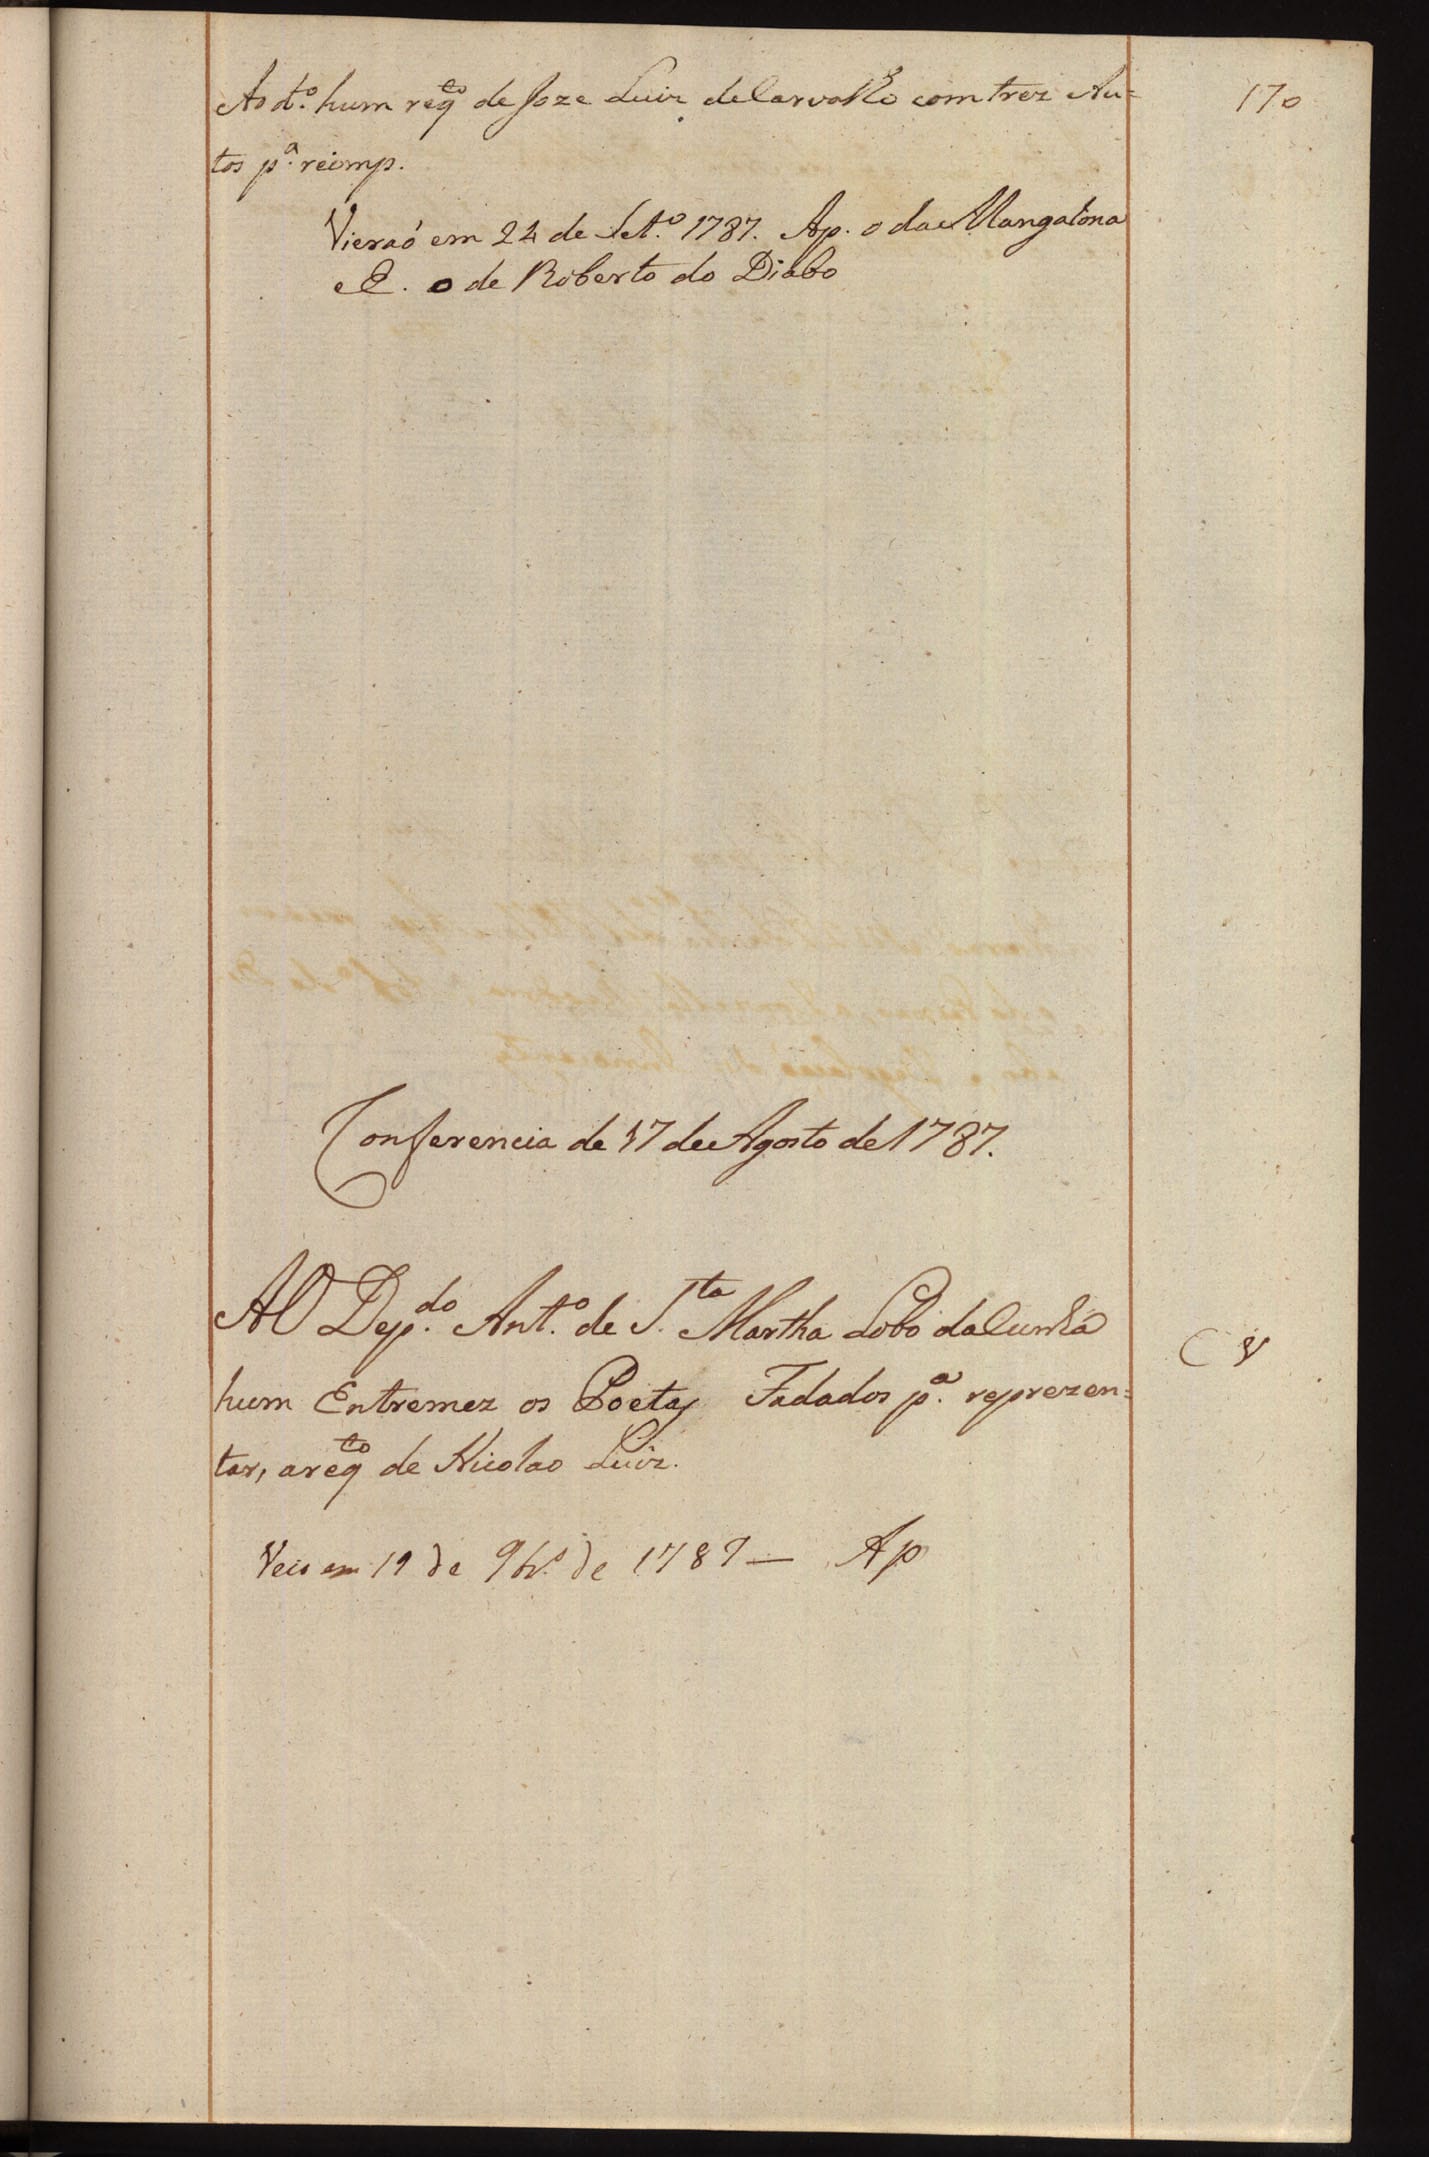 Ao d.º hum reqto de Joze Luiz de Carvalho com trez Au=
170
tos p.ª reimp.
Vieraõ em 24 de Set.º 1787. Ap. o da Mangalona
E. o de Roberto do Diabo
Conferencia de 17 de Agosto de 1787.
AO Dep.do Ant.º de S.ta Martha Lobo da Cunha
hum Entremez os Poetas Fadados p.ª reprezen=
tar, a reqto de Nicolao Luiz.
Veio em 19 de 9br.º de 1787 — Ap